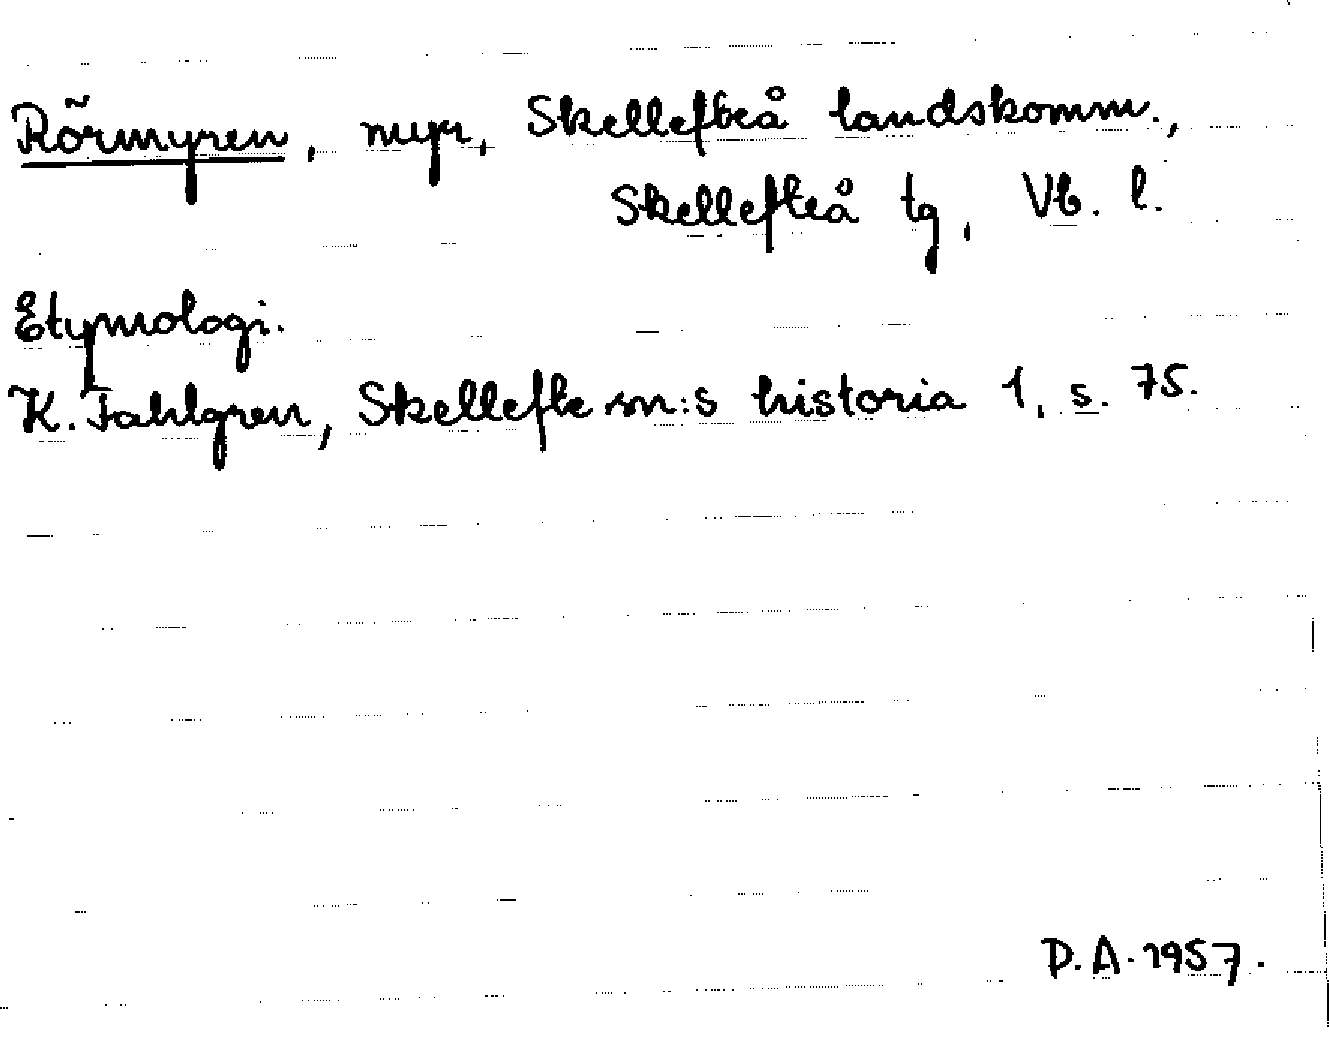 Rörmyren, myr, Skellefteå landskomm.,
Skellefteå tg, Vb. l.
Etymologi.
K. Fahlgren, Skellefte sn:s historia 1, s. 75.
D.A. 1957.